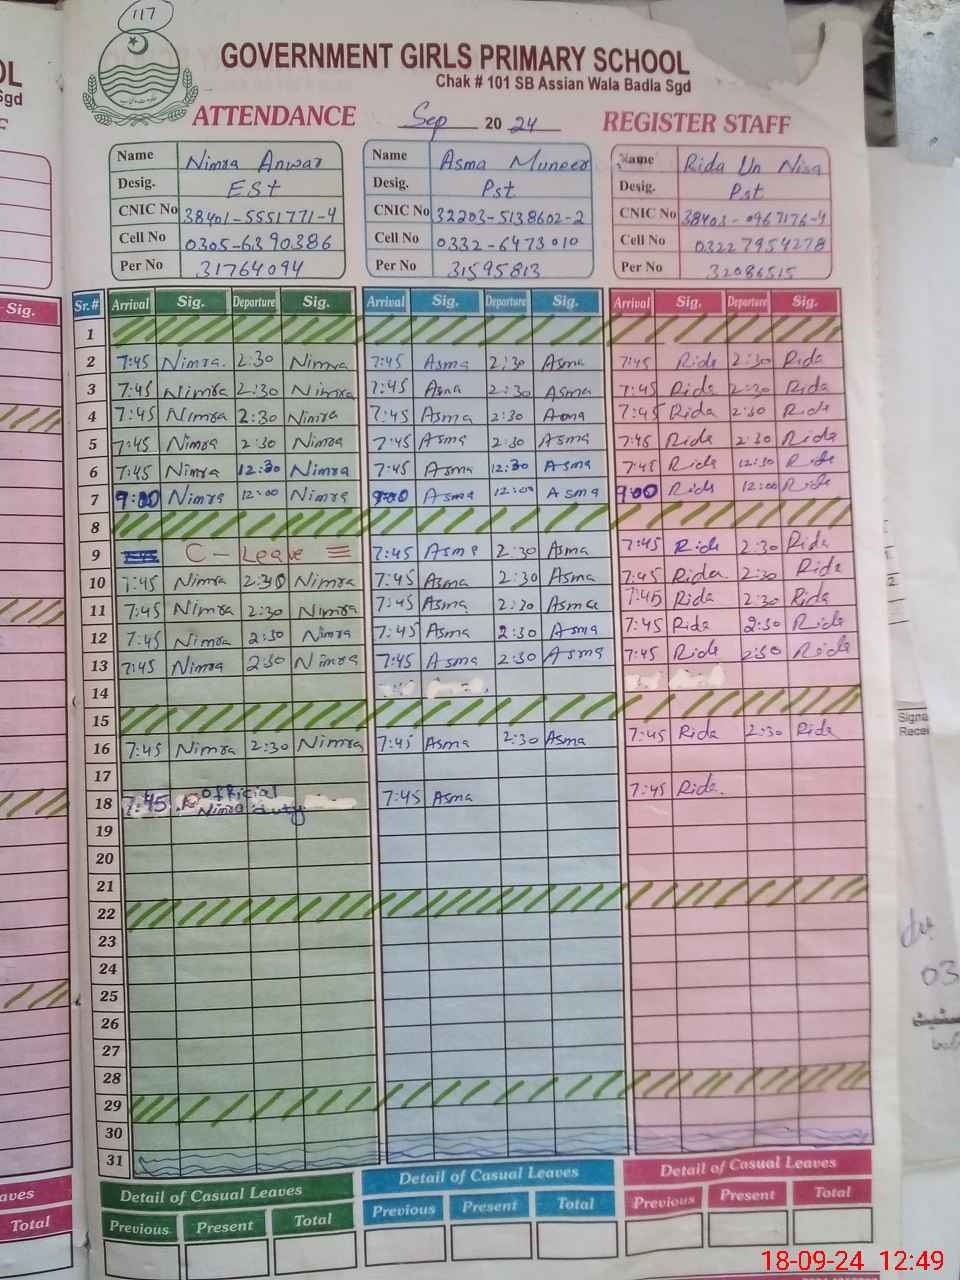 117
GOVERNMENT GIRLS PRIMARY SCHOOL
Chak # 101 SB Assian Wala Badla Sgd
ATTENDANCE Sep 20 24 REGISTER STAFF
Name Nimra Anwar Name Asma Muneer Name Rida Un Nisa
Desig. ESt Desig. Pst Desig. Pst
CNIC No 38401-5551771-4 CNIC No 32203-5138602-2 CNIC No 38403-0967176-4
Cell No 0305-6390386 Cell No 0332-6473010 Cell No 03227954278
Per No 31764094 Per No 31595813 Per No 32086515
Sig. Sr.# Arrival Sig. Departure Sig. Arrival Sig. Departure Sig. Arrival Sig. Departure Sig.
1
2 7:45 Nimra. 2:30 Nimra 7:45 Asma 2:30 Asma 7:45 Rida 2:30 Rida
3 7:45 Nimra 2:30 Nimra 7:45 Asma 2:30 Asma 7:45 Rida 2:30 Rida
4 7:45 Nimra 2:30 Nimra 7:45 Asma 2:30 Asma 7:45 Rida 2:30 Rida
5 7:45 Nimra 2:30 Nimra 7:45 Asma 2:30 Asma 7:45 Rida 2:30 Rida
6 7:45 Nimra 12:30 Nimra 7:45 Asma 12:30 Asma 7:45 Rida 12:30 Rida
7 9:00 Nimra 12:00 Nimra 9:00 Asma 12:00 Asma 9:00 Rida 12:00 Rida
8
9 C - Leave 7:45 Asma 2:30 Asma 7:45 Rida 2:30 Rida
10 7:45 Nimra 2:30 Nimra 7:45 Asma 2:30 Asma 7:45 Rida. 2:30 Rida
11 7:45 Nimra 2:30 Nimra 7:45 Asma 2:30 Asma 7:45 Rida 2:30 Rida
12 7:45 Nimra 2:30 Nimra 7:45 Asma 2:30 Asma 7:45 Rida 2:30 Rida
13 7:45 Nimra 2:30 Nimra 7:45 Asma 2:30 Asma 7:45 Rida 2:30 Rida
14
15
16 7:45 Nimra 2:30 Nimra 7:45 Asma 2:30 Asma 7:45 Rida 2:30 Rida
17
18 7:45 Official Nimra duty 7:45 Asma 7:45 Rida.
19
20
21
22
23
24
25
26
27
28
29
30
31
Detail of Casual Leaves Detail of Casual Leaves Detail of Casual Leaves
Total Previous Present Total Previous Present Total Previous Present Total
18-09-24 12:49